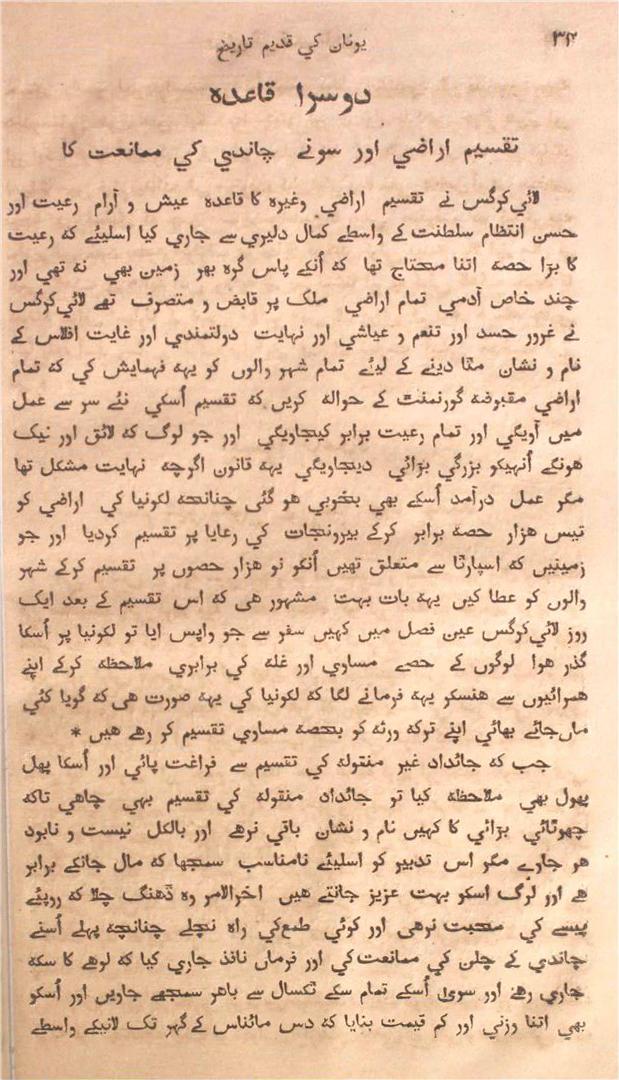 ۳۲ یونان کي قدیم تاریخ
دوسرا قاعدہ
تقسیم اراضي اور سونے چاندي کي ممانعت کا
لائي‌کرگس نے تقسیم اراضي وغیرہ کا قاعدہ عیش و آرام رعیت اور
حسن انتظام سلطنت کے واسطے کمال دلیري سے جاري کیا اسلیئے کہ رعیت
کا بڑا حصہ اتنا محتاج تھا کہ اُنکے پاس گرہ بھر زمین بھي نہ تھي اور
چند خاص آدمي تمام اراضي ملک پر قابض و متصرف تھے لائي‌کرگس
نے غرور حسد اور تنعم و عیاشي اور نہایت دولتمندي اور غایت افلاس کے
نام و نشان مٹا دینے کے لیئے تمام شہر والوں کو یہہ فہمایش کي کہ تمام
اراضي مقبوضہ گورنمنٹ کے حوالہ کریں کہ تقسیم اُسکي نئے سر سے عمل
میں آویگي اور تمام رعیت برابر کیجاویگي اور جو لوگ کہ لائق اور نیک
هونگے اُنہیکو بزرگي بڑائي دیجاویگي یہہ قانون اگرچہ نہایت مشکل تھا
مگر عمل درآمد اُسکے بھي بخوبي هو گئي چنانچہ لکونیا کي اراضي کو
تیس هزار حصہ برابر کرکے بیرونجات کي رعایا پر تقسیم کردیا اور جو
زمینیں کہ اسپارٹا سے متعلق تھیں اُنکو نو هزار حصوں پر تقسیم کرکے شہر
والوں کو عطا کیں یہہ بات بہت مشہور هی کہ اس تقسیم کے بعد ایک
روز لائي‌کرگس عین فصل میں کہیں سفر سے جو واپس ایا تو لکونیا پر اُسکا
گذر هوا لوگوں کے حصے مساوي اور غلہ کي برابري ملاحظہ کرکے اپنے
همرائیوں سے هنسکر یہہ فرمانے لگا کہ لکونیا کي یہہ صورت هی کہ گویا کئي
ماں‌جائے بھائي اپنے ترکہ ورثہ کو بحصہ مساوي تقسیم کر رهے هیں *
جب کہ جائداد غیر منقولہ کي تقسیم سے فراغت پائي اور اُسکا پھل
پھول بھي ملاحظہ کیا تو جائداد منقولہ کي تقسیم بہي چاهي تاکہ
چھوٹائي بڑائي کا کہیں نام و نشان باقي نرهے اور بالکل نیست و نابود
هو جاوے مگر اس تدبیر کو اسلیئے نامناسب سمجھا کہ مال جانکے برابر
هے اور لوگ اسکو بہت عزیز جانتے هیں اخرالامر وہ ڈھنگ چلا کہ روپئے
پیسے کي محبت نرهي اور کوئي طمع‌کي راہ نچلے چنانچہ پہلے اُسنے
چاندي کے چلن کي ممانعت‌کي اور فرماں نافذ جاري کیا کہ لوهے کا سکہ
جاري رهے اور سوی اُسکے تمام سکے ٹکسال سے باهر سمجھے جاویں اور اُسکو
بھي اتنا وزني اور کم قیمت بنایا کہ دس مائناس کے گہر تک لانیکے واسطے